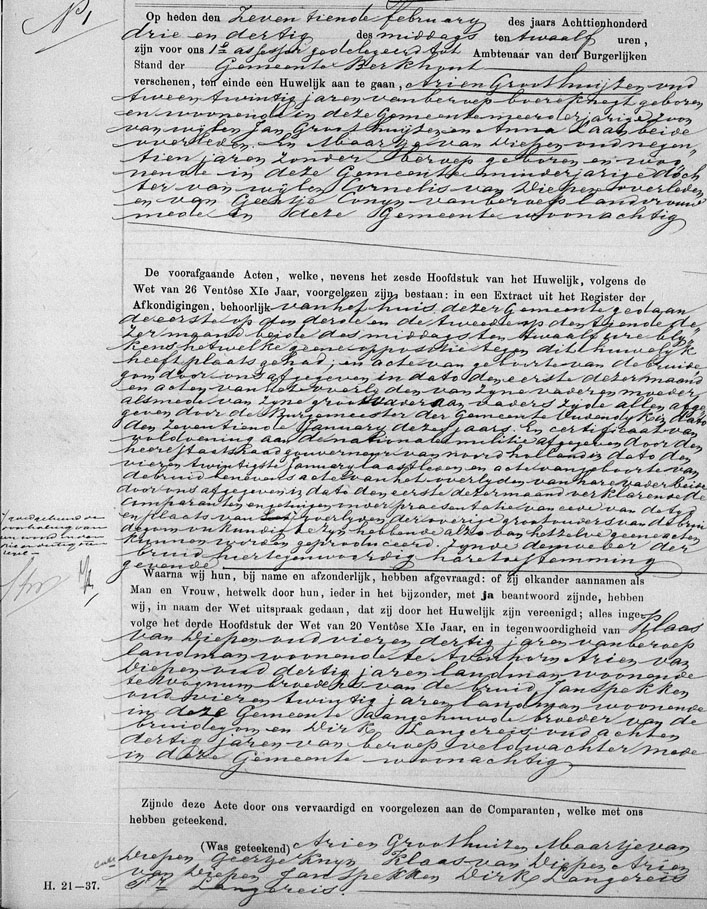 N 1
Op heden den Zeventiende february des jaars Achttienhonderd
drie en dertig des middags ten twaalf uren,
zijn voor ons 1e assessor gedelegeerd tot Ambtenaar van den Burgerlijken
Stand der Gemeente Berkhout
verschenen, ten einde een Huwelijk aan te gaan, Arien Groothuijzen oud
twee en twintig jaren van beroep boereknegt geboren
en woonende in deze Gemeente meerderjarige zoon
van wijlen Jan Groothuijzen en Anna Laan beide
overleden. En Maartje van Diepen oud negen
tien jaren zonder beroep geboren en woo
nende in deze Gemeente minderjarige doch
ter van wijlen Cornelis van Diepen overleden
en van Geertje Conyn van beroep landvrouw
mede in deze Gemeente woonachtig
De voorafgaande Acten, welke, nevens het zesde Hoofdstuk van het Huwelijk, volgens de
Wet van 26 Ventôse XIe Jaar, voorgelezen zijn, bestaan: in een Extract uit het Register der
Afkondigingen, behoorlijk van het huis dezer Gemeente gedaan
de eerste op den derde en de tweede op den tiende de
zer maand beide des middags ten twaalf ure bly
kens hetwelke geene oppositie tegen dit huwelyk
heeft plaats gehad; en acte van geboorte van de bruide
gom door ons afgegeven in dato den eerste dezer maand
en acten van het overlyden van zyne vader en moeder
alsmede van zyne grootvader van vaders zyde allen afge
geven door de Burgemeester der Gemeente in dato
den zeventiende January dezes jaars. En certificaat van
voldoening aan de nationale militie afgegeven door den
heere Staatsraad gouverneur van noord holland in dato den
vier en twintigste January laastleden en acte van geboorte van
de bruid benevens acte van het overlyden van hare vader beide
door ons afgegeven in dato den eerste dezer maand verklarende de
comparanten en getuigen in over presentatie van eede van de tyd
en plaats van overlyden der overige grootouders van de brui
degom onkundig te zyn hebbende alzo van hetzelve geene acten
kunnen worden geproduceerd zynde de moeder der
bruid hier tegenwoordig hare toestemming
gevende
Waarna wij hun, bij name en afzonderlijk, hebben afgevraagd: of zij elkander aannamen als
Man en Vrouw, hetwelk door hun, ieder in het bijzonder, met ja beantwoord zijnde, hebben
wij, in naam der Wet uitspraak gedaan, dat zij door het Huwelijk zijn vereenigd; alles inge-
volge het derde Hoofdstuk der Wet van 20 Ventôse XIe Jaar, en in tegenwoordigheid van Klaas
van Diepen oud vier en dertig jaren van beroep
landman woonende te Avenhorn Arien van
Diepen oud dertig jaren landman woonende
te Hoogmum broeders van de bruid Jan Spekken
oud vier en twintig jaren landman woonende
in deze Gemeente aangehuwde broeder van de
bruidegom en Dirk Langereis oud achten
dertig jaren van beroep veldwachter mede
in deze Gemeente woonachtig
Zijnde deze Acte door ons vervaardigd en voorgelezen aan de Comparanten, welke met ons
hebben geteekend.
(Was geteekend) Arien Groothuizen Maartje van
Diepen Geertje Knyn Klaas van Diepen Arien
van Diepen Jan Spekken Dirk Langereis
Langereis.
H. 21—37.